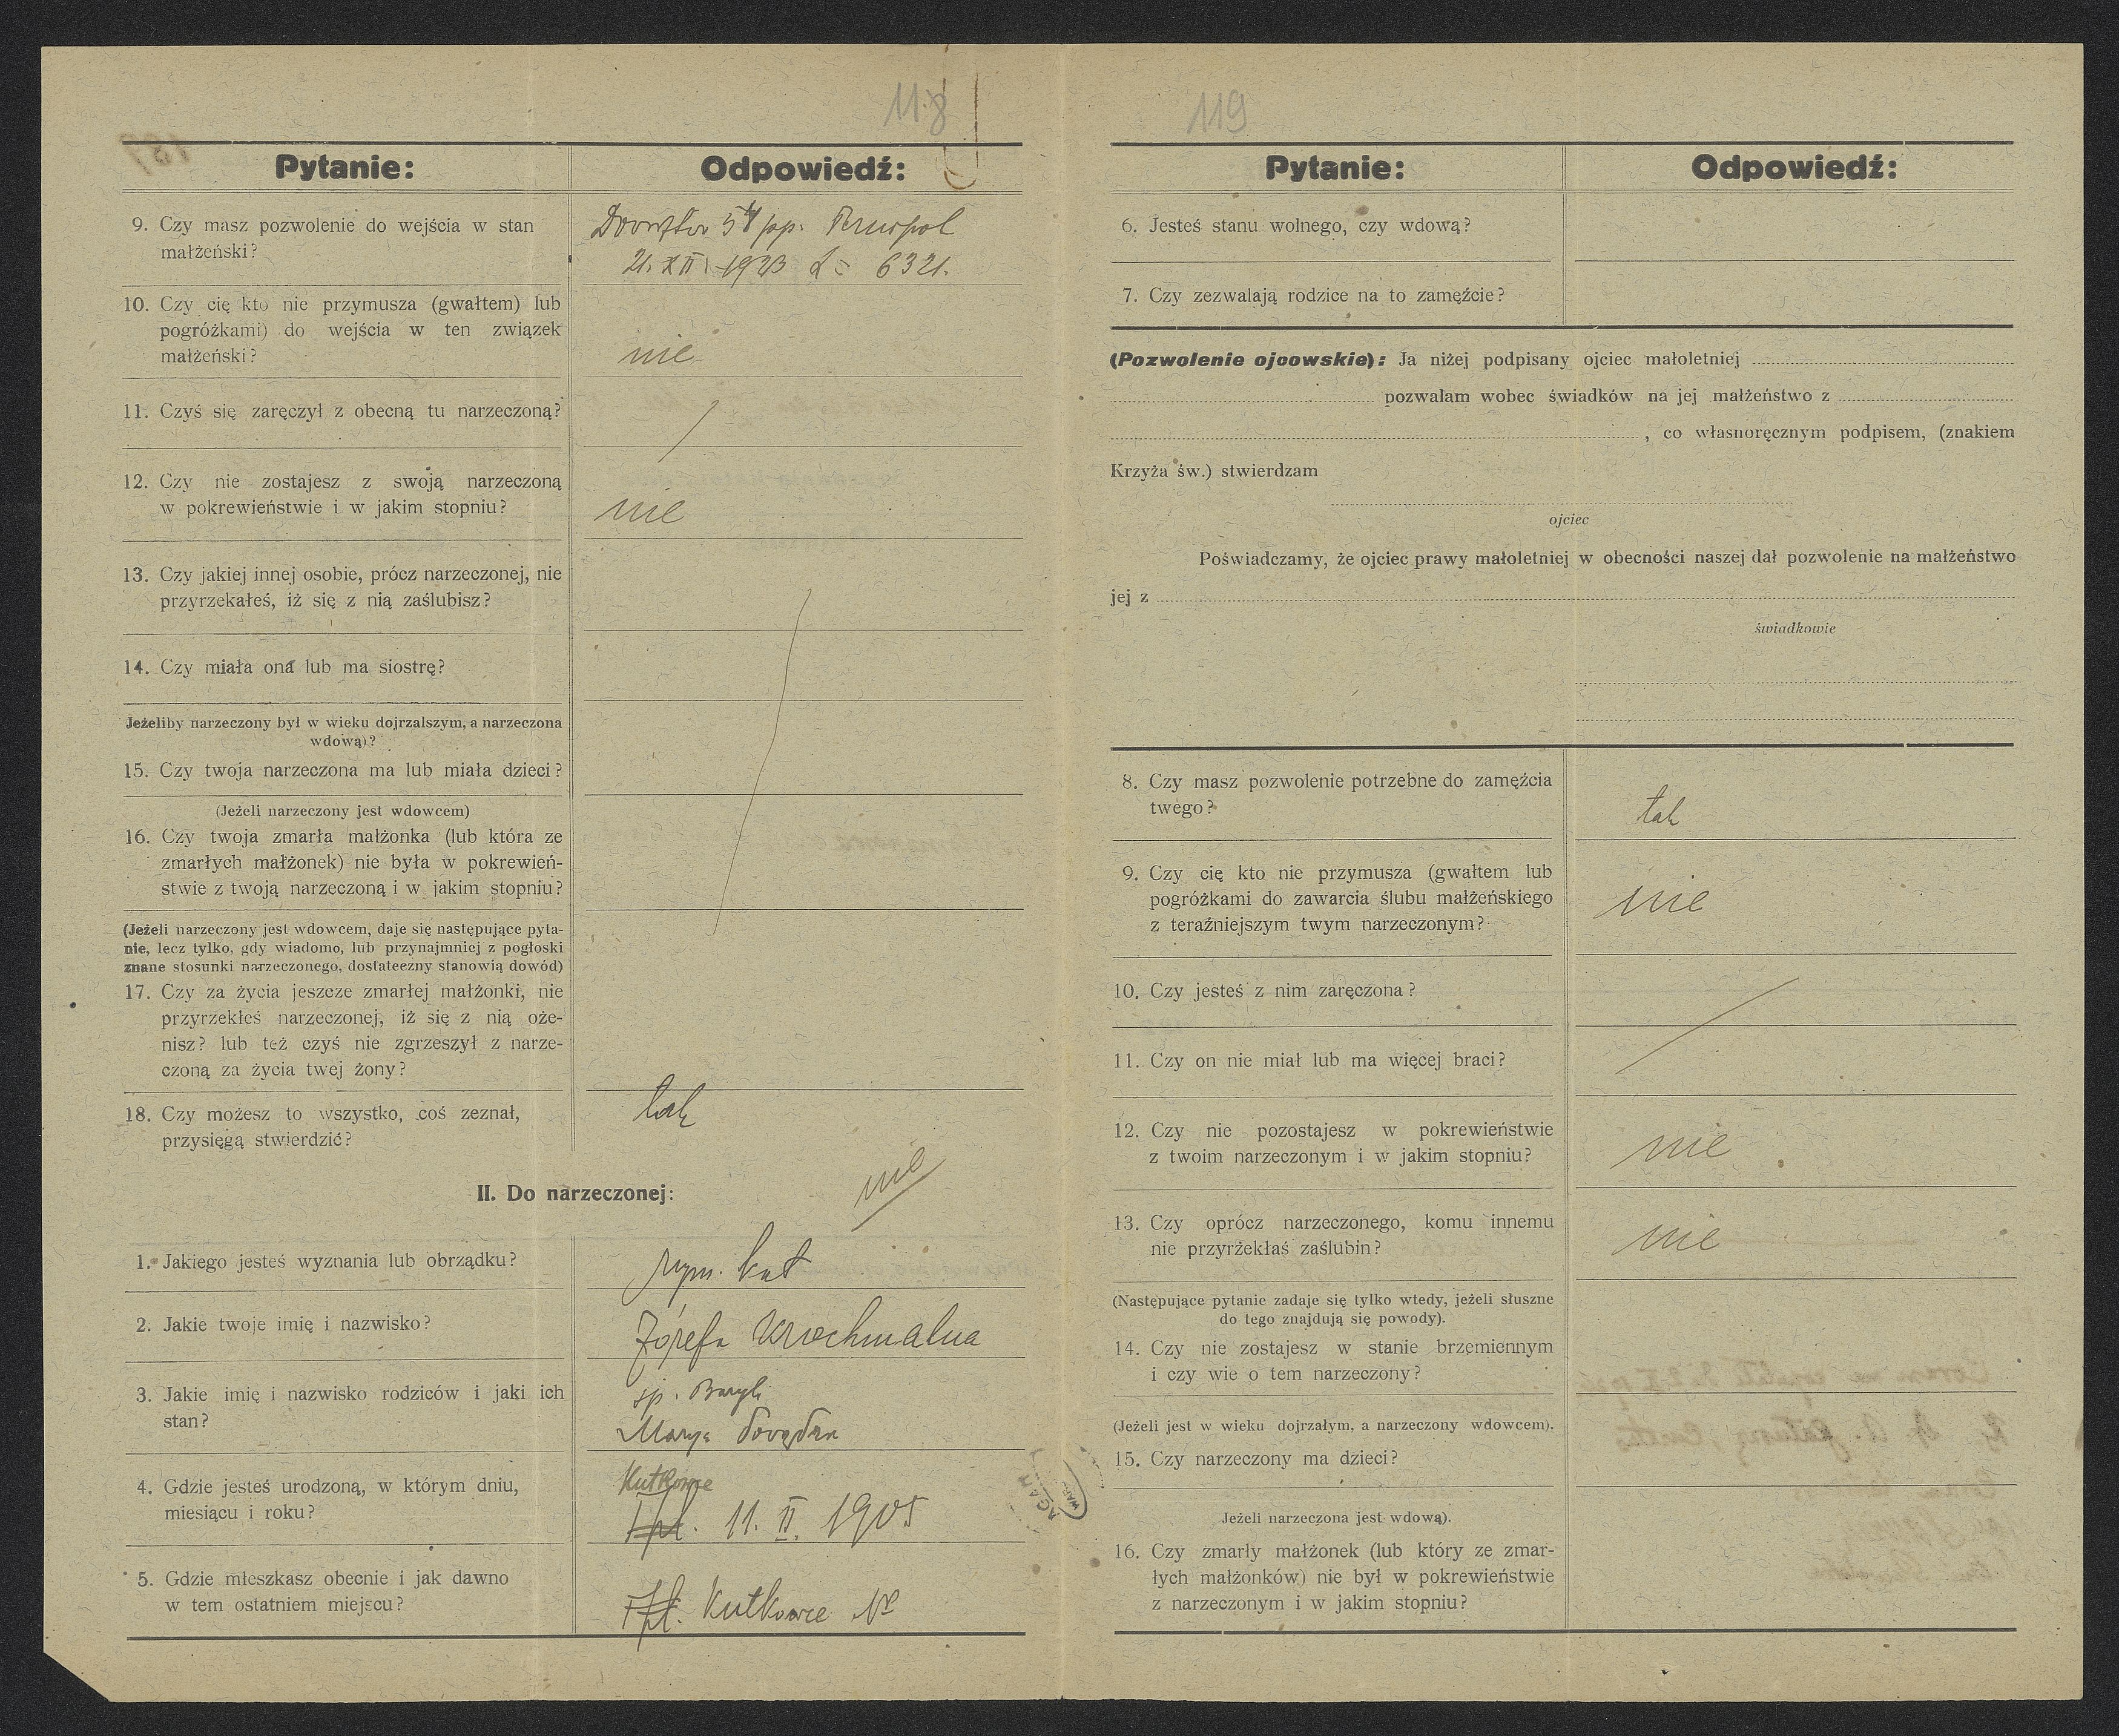 118
Pytanie:
Odpowiedź:
9. Czy masz pozwolenie do wejścia w stan
małżeński?
21. XII. 1923 L: 6321.
10. Czy cię kto nie przymusza (gwałtem) lub
pogróżkami) do wejścia w ten związek
małżeński?
nie
11. Czyś się zaręczył z obecną tu narzeczoną?
12. Czy nie zostajesz z swoją narzeczoną
w pokrewieństwie i w jakim stopniu?
nie
13. Czy jakiej innej osobie, prócz narzeczonej, nie
przyrzekałeś, iż się z nią zaślubisz?
14. Czy miała ona lub ma siostrę?
Jeżeliby narzeczony był w wieku dojrzalszym, a narzeczona
wdową)?
15. Czy twoja narzeczona ma lub miała dzieci?
(Jeżeli narzeczony jest wdowcem)
16. Czy twoja zmarła małżonka (lub która ze
zmarłych małżonek) nie była w pokrewień-
stwie z twoją narzeczoną i w jakim stopniu?
(Jeżeli narzeczony jest wdowcem, daje się następujące pyta-
nie, lecz tylko, gdy wiadomo, lub przynajmniej z pogłoski
znane stosunki narzeczonego, dostateczny stanowią dowód)
17. Czy za życia jeszcze zmarłej małżonki, nie
przyrzekłeś narzeczonej, iż się z nią oże-
nisz? lub też czyś nie zgrzeszył z narze-
czoną za życia twej żony?
18. Czy możesz to wszystko, coś zeznał,
przysięgą stwierdzić?
tak
nie
II. Do narzeczonej:
1. Jakiego jesteś wyznania lub obrządku?
rzym. kat
2. Jakie twoje imię i nazwisko?
Józefa Krochmalna
3. Jakie imię i nazwisko rodziców i jaki ich
stan?
śp. Bazyli
Marya
4. Gdzie jesteś urodzoną, w którym dniu,
miesiącu i roku?
Kutkowce
Tpl. 11. II. 1905
5. Gdzie mieszkasz obecnie i jak dawno
w tem ostatniem miejscu?
Tpl. Kutkowce No
119
Pytanie:
Odpowiedź:
6. Jesteś stanu wolnego, czy wdową?
7. Czy zezwalają rodzice na to zamęźcie?
(Pozwolenie ojcowskie): Ja niżej podpisany ojciec małoletniej
pozwalam wobec świadków na jej małżeństwo z
, co własnoręcznym podpisem, (znakiem
Krzyża św.) stwierdzam
ojciec
Poświadczamy, że ojciec prawy małoletniej w obecności naszej dał pozwolenie na małżeństwo
jej z
świadkowie
8. Czy masz pozwolenie potrzebne do zamęźcia
twego?
tak
9. Czy cię kto nie przymusza (gwałtem lub
pogróżkami do zawarcia ślubu małżeńskiego
z teraźniejszym twym narzeczonym?
nie
10. Czy jesteś z nim zaręczona?
11. Czy on nie miał lub ma więcej braci?
12. Czy nie pozostajesz w pokrewieństwie
z twoim narzeczonym i w jakim stopniu?
nie
13. Czy oprócz narzeczonego, komu innemu
nie przyrzekłaś zaślubin?
nie
(Następujące pytanie zadaje się tylko wtedy, jeżeli słuszne
do tego znajdują się powody).
14. Czy nie zostajesz w stanie brzemiennym
i czy wie o tem narzeczony?
(Jeżeli jest w wieku dojrzałym, a narzeczony wdowcem).
15. Czy narzeczony ma dzieci?
Jeżeli narzeczona jest wdową).
16. Czy zmarły małżonek (lub który ze zmar-
łych małżonków) nie był w pokrewieństwie
z narzeczonym i w jakim stopniu?